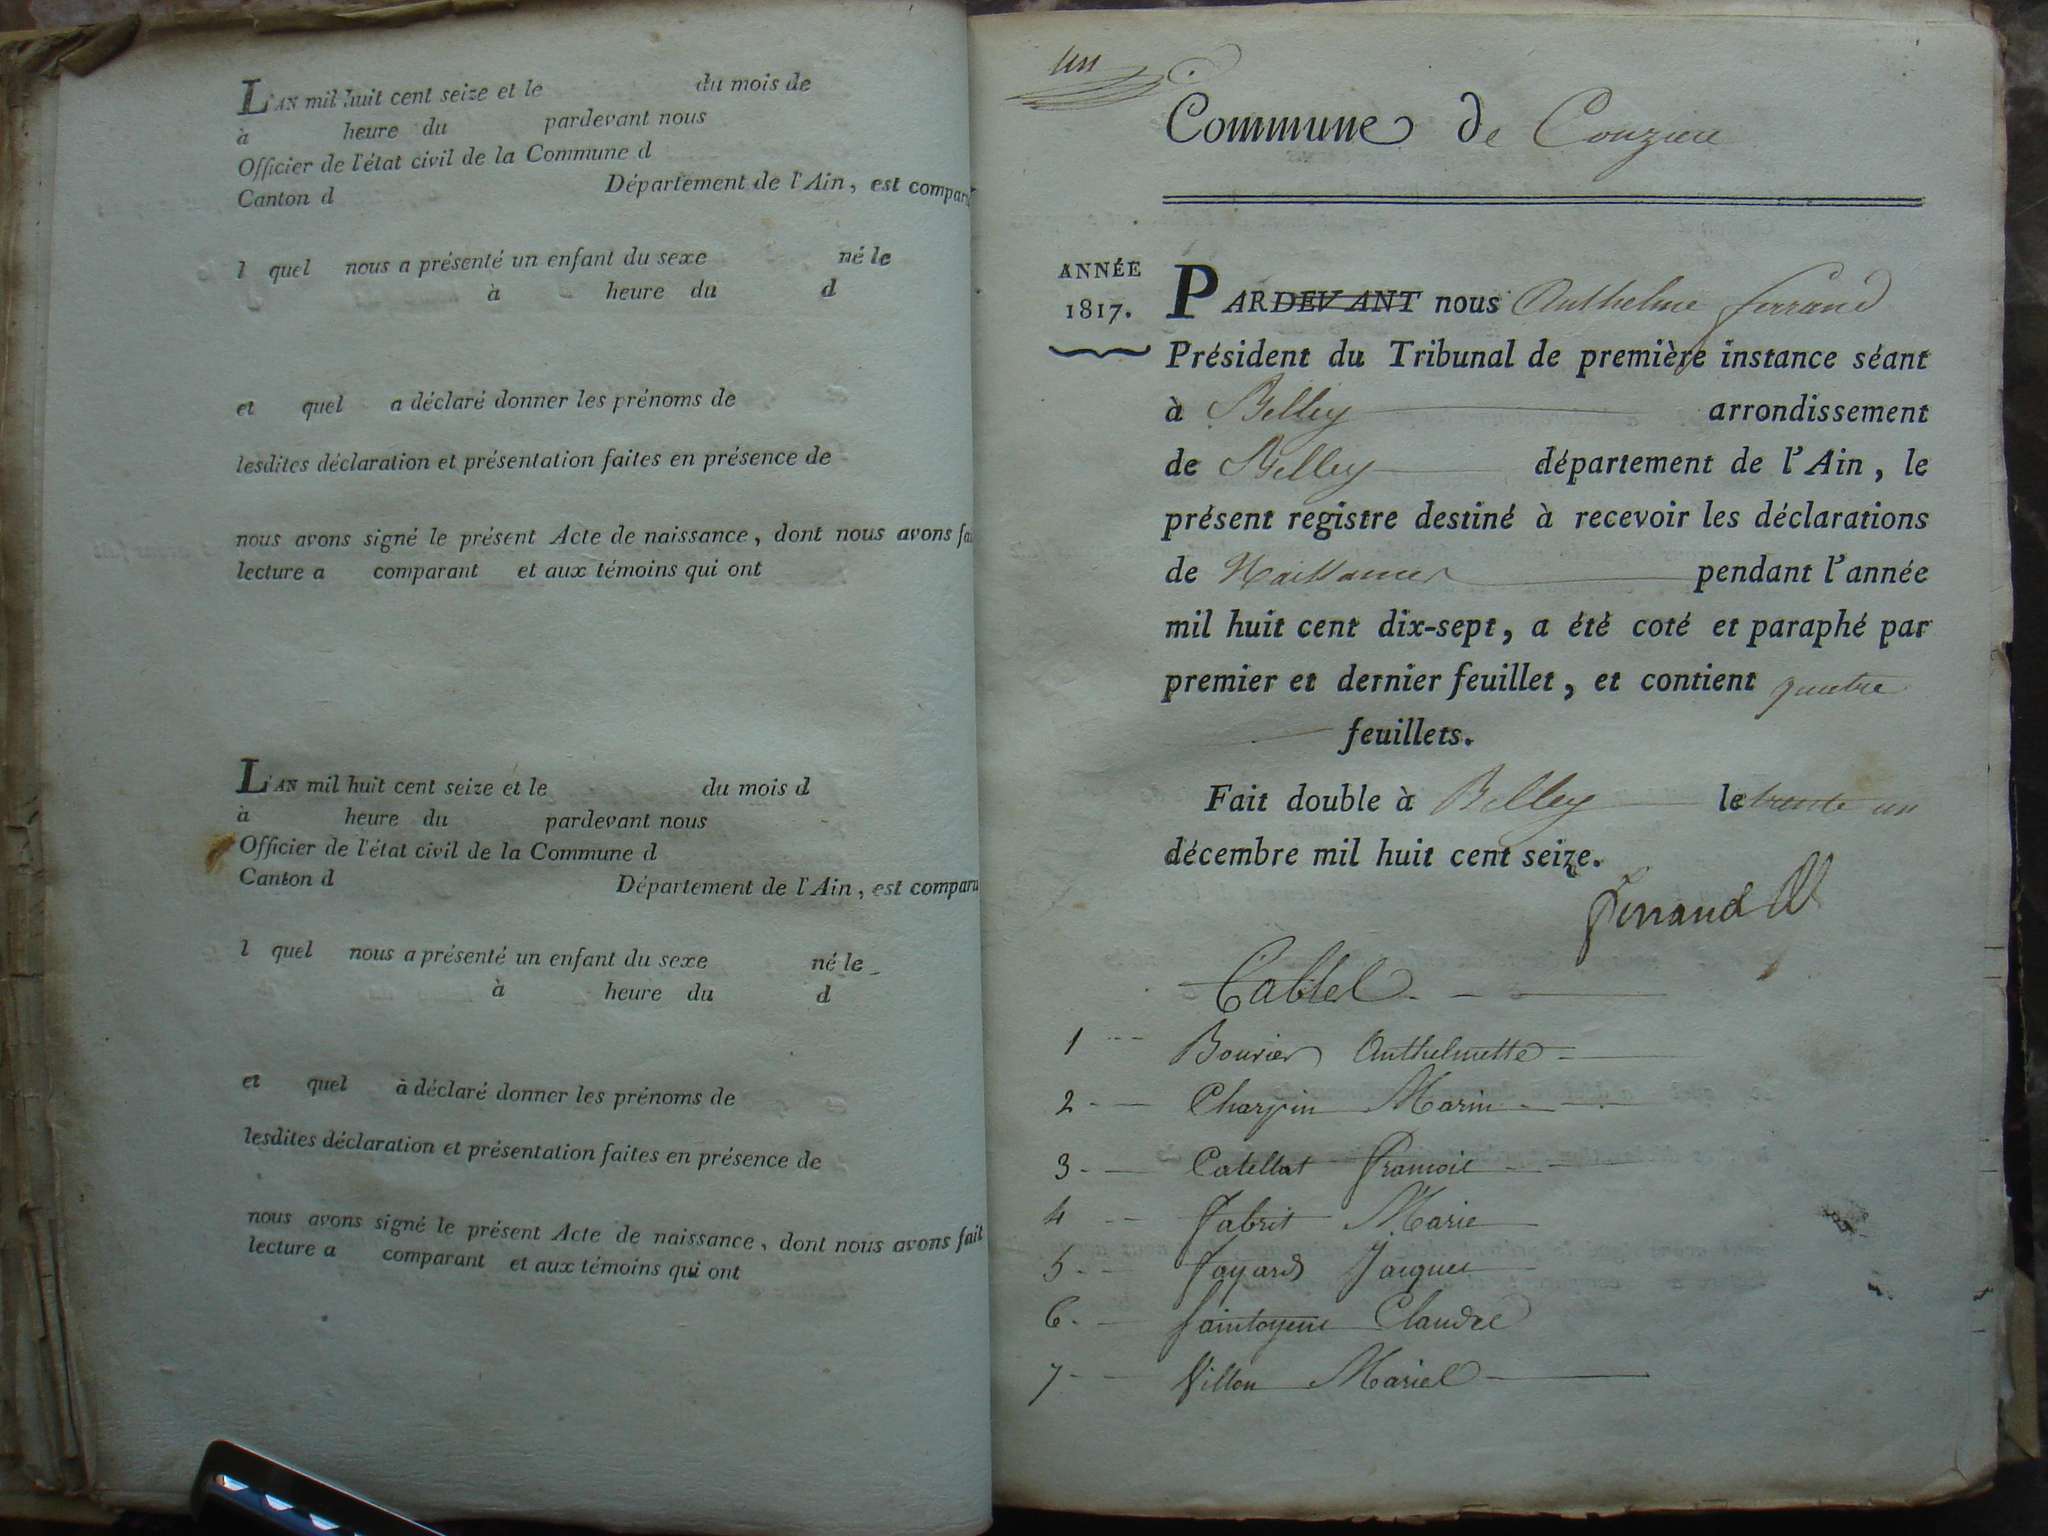 L'AN mil huit cent seize et le du mois de
à heure du pardevant nous
Officier de l'état civil de la Commune d
Canton d Département de l'Ain, est comparu
l quel nous a présenté un enfant du sexe né le
à heure du d
et quel a déclaré donner les prénoms de
lesdites déclaration et présentation faites en présence de
nous avons signé le présent Acte de naissance, dont nous avons fai
lecture a comparant et aux témoins qui ont
L'AN mil huit cent seize et le du mois d
à heure du pardevant nous
Officier de l'état civil de la Commune d
Canton d Département de l'Ain, est comparu
l quel nous a présenté un enfant du sexe né le
à heure du d
et quel à déclaré donner les prénoms de
lesdites déclaration et présentation faites en présence de
nous avons signé le présent Acte de naissance, dont nous avons fait
lecture a comparant et aux témoins qui ont
un
Commune de Conzieu
ANNÉE
1817.
PARDEVANT nous Anthelme ferrand
Président du Tribunal de première instance séant
à Belley arrondissement
de Belley département de l'Ain, le
présent registre destiné à recevoir les déclarations
de Naissances pendant l'année
mil huit cent dix-sept, a été coté et paraphé par
premier et dernier feuillet, et contient quatre
feuillets.
Fait double à Belley le trente un
décembre mil huit cent seize.
ferrand
Table
1 Bouvier Anthelmette
2 Charpin Marin
3 Catellat françoise
4 fabrit Marie
5 fayard Jacques
6 Claude
7 Villon Marie